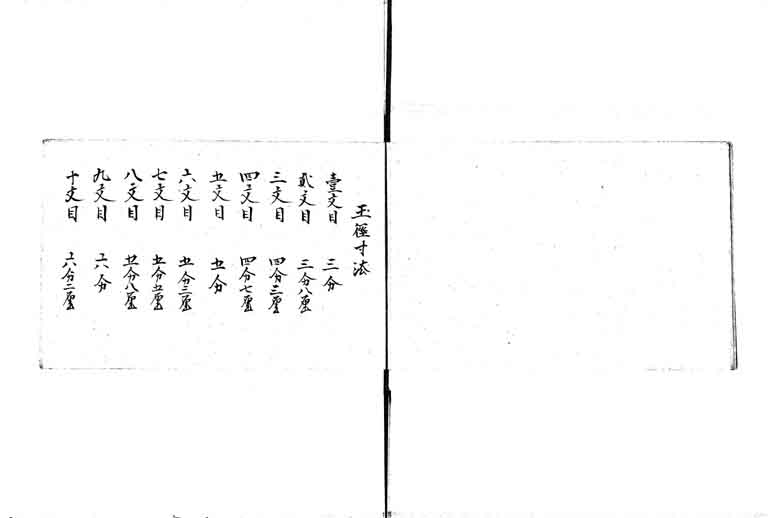 玉徑寸法
壹文目 三分
貳文目 三分八厘
三文目 四分三厘
四文目 四分七厘
五文目 五分
六文目 五分三厘
七文目 五分五厘
八文目 五分八厘
九文目 六分
十文目 六分二厘